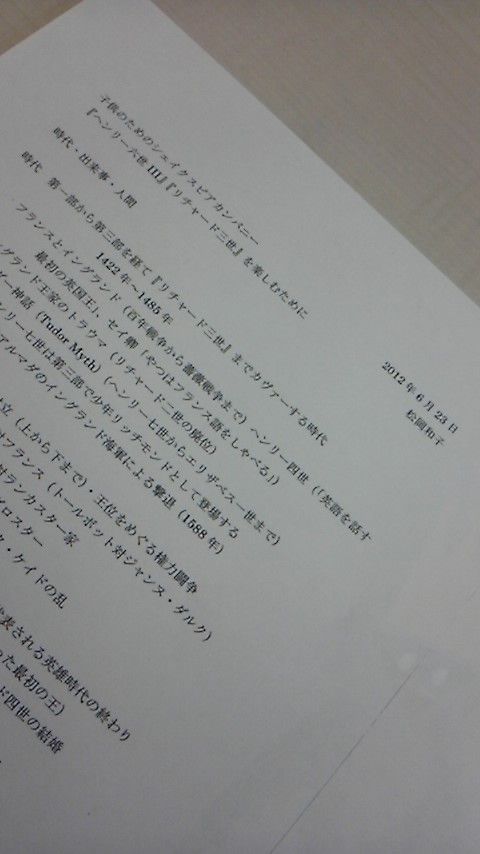 子供のためのシェイクスピアカンパニー
『ヘンリー六世 III』『リチャード三世』を楽しむために
2012年6月23日
松岡和子
時代・出来事・人間
時代 第一部から第三部を経て『リチャード三世』までカヴァーする時代
1422年～1485年
フランスとイングランド(百年戦争から薔薇戦争まで) ヘンリー四世(「英語を話す
最初の英国王」、セイ卿「やつはフランス語をしゃべる!」)
グランド王家のトラウマ(リチャード二世の廃位)
ダー神話(Tudor Myth)(ヘンリー七世からエリザベス一世まで)
ンリー七世は第三部で少年リッチモンドとして登場する
アルマダのイングランド海軍による撃退(1588年)
立(上から下まで)・王位をめぐる権力闘争
対フランス(トールボット対ジャンヌ・ダルク)
対ランカスター家
ロスター
ク・ケイドの乱
表される英雄時代の終わり
った最初の王)
ド四世の結婚